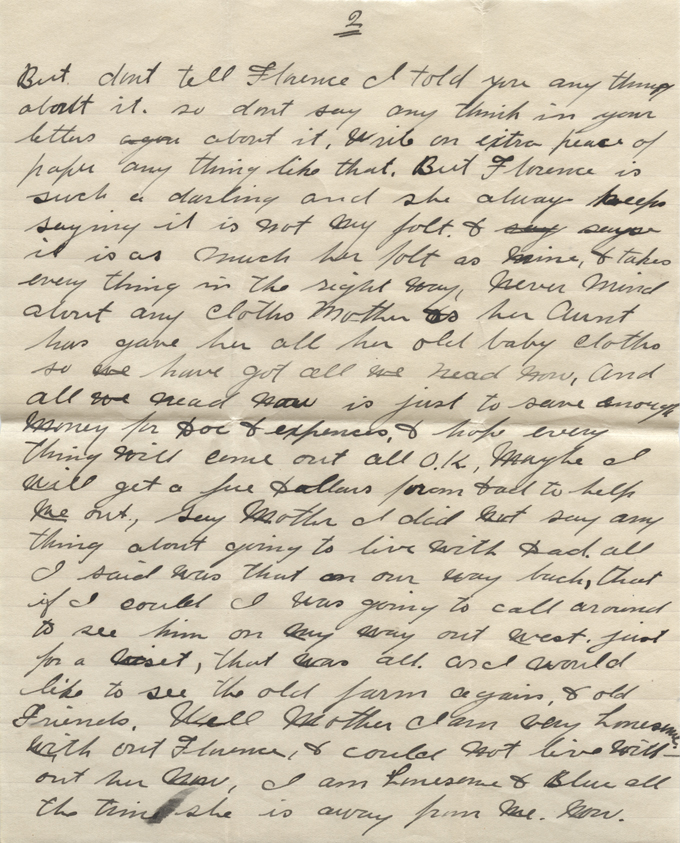 2
But. dont tell Florence I told you any thing
about it. so dont say any think in your
letters agan about it, Write on extra peace of
paper any thing like that. But Florence is
such a darling and she alway keeps
saying it is not my folt. & say sayse
it is as much her folt as mine, & takes
every thing in the right way, Never Mind
about any cloths Mother as her Aunt
has gave her all her old baby cloths
so we have got all we nead now, And
all we nead now is just to save enough
Money for Doc & expences, & hope every
thing will come out all O.K, Maybe I
will get a fue Dollars from Dad to help
me out., Say Mother I did not say any
thing about going to live with Dad. all
I said was that on our way back, that
if I could I was going to call around
to see him on my way out west. just
for a viset, that was all. and would
like to see the old farm again, & old
Friends. Well Mother I am very lonesome
with out Florence, & could not live with-
out her Now, I am lonesome & Blue all
the time she is away from me. Now.